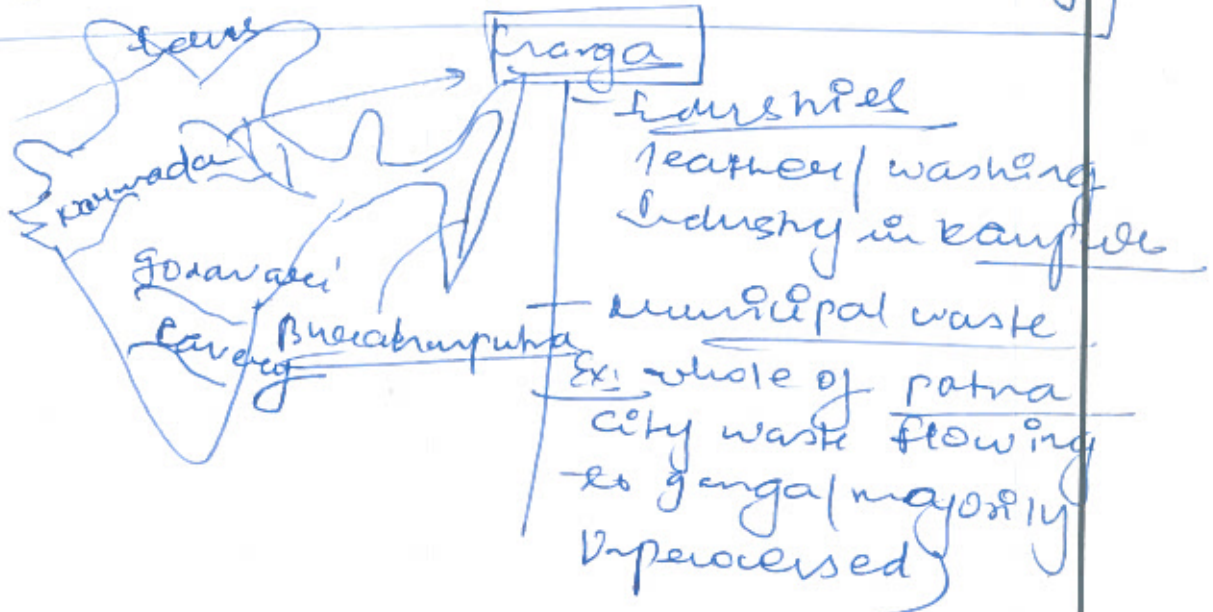 Indus
Narmada
Godavari
Cavery
Brahmaputra
Ganga
- Industries
leather/ washing
Industry in Kanpur
- Municipal waste
Ex: whole of patna
city waste flowing
to ganga/ majorily
Unprocessed